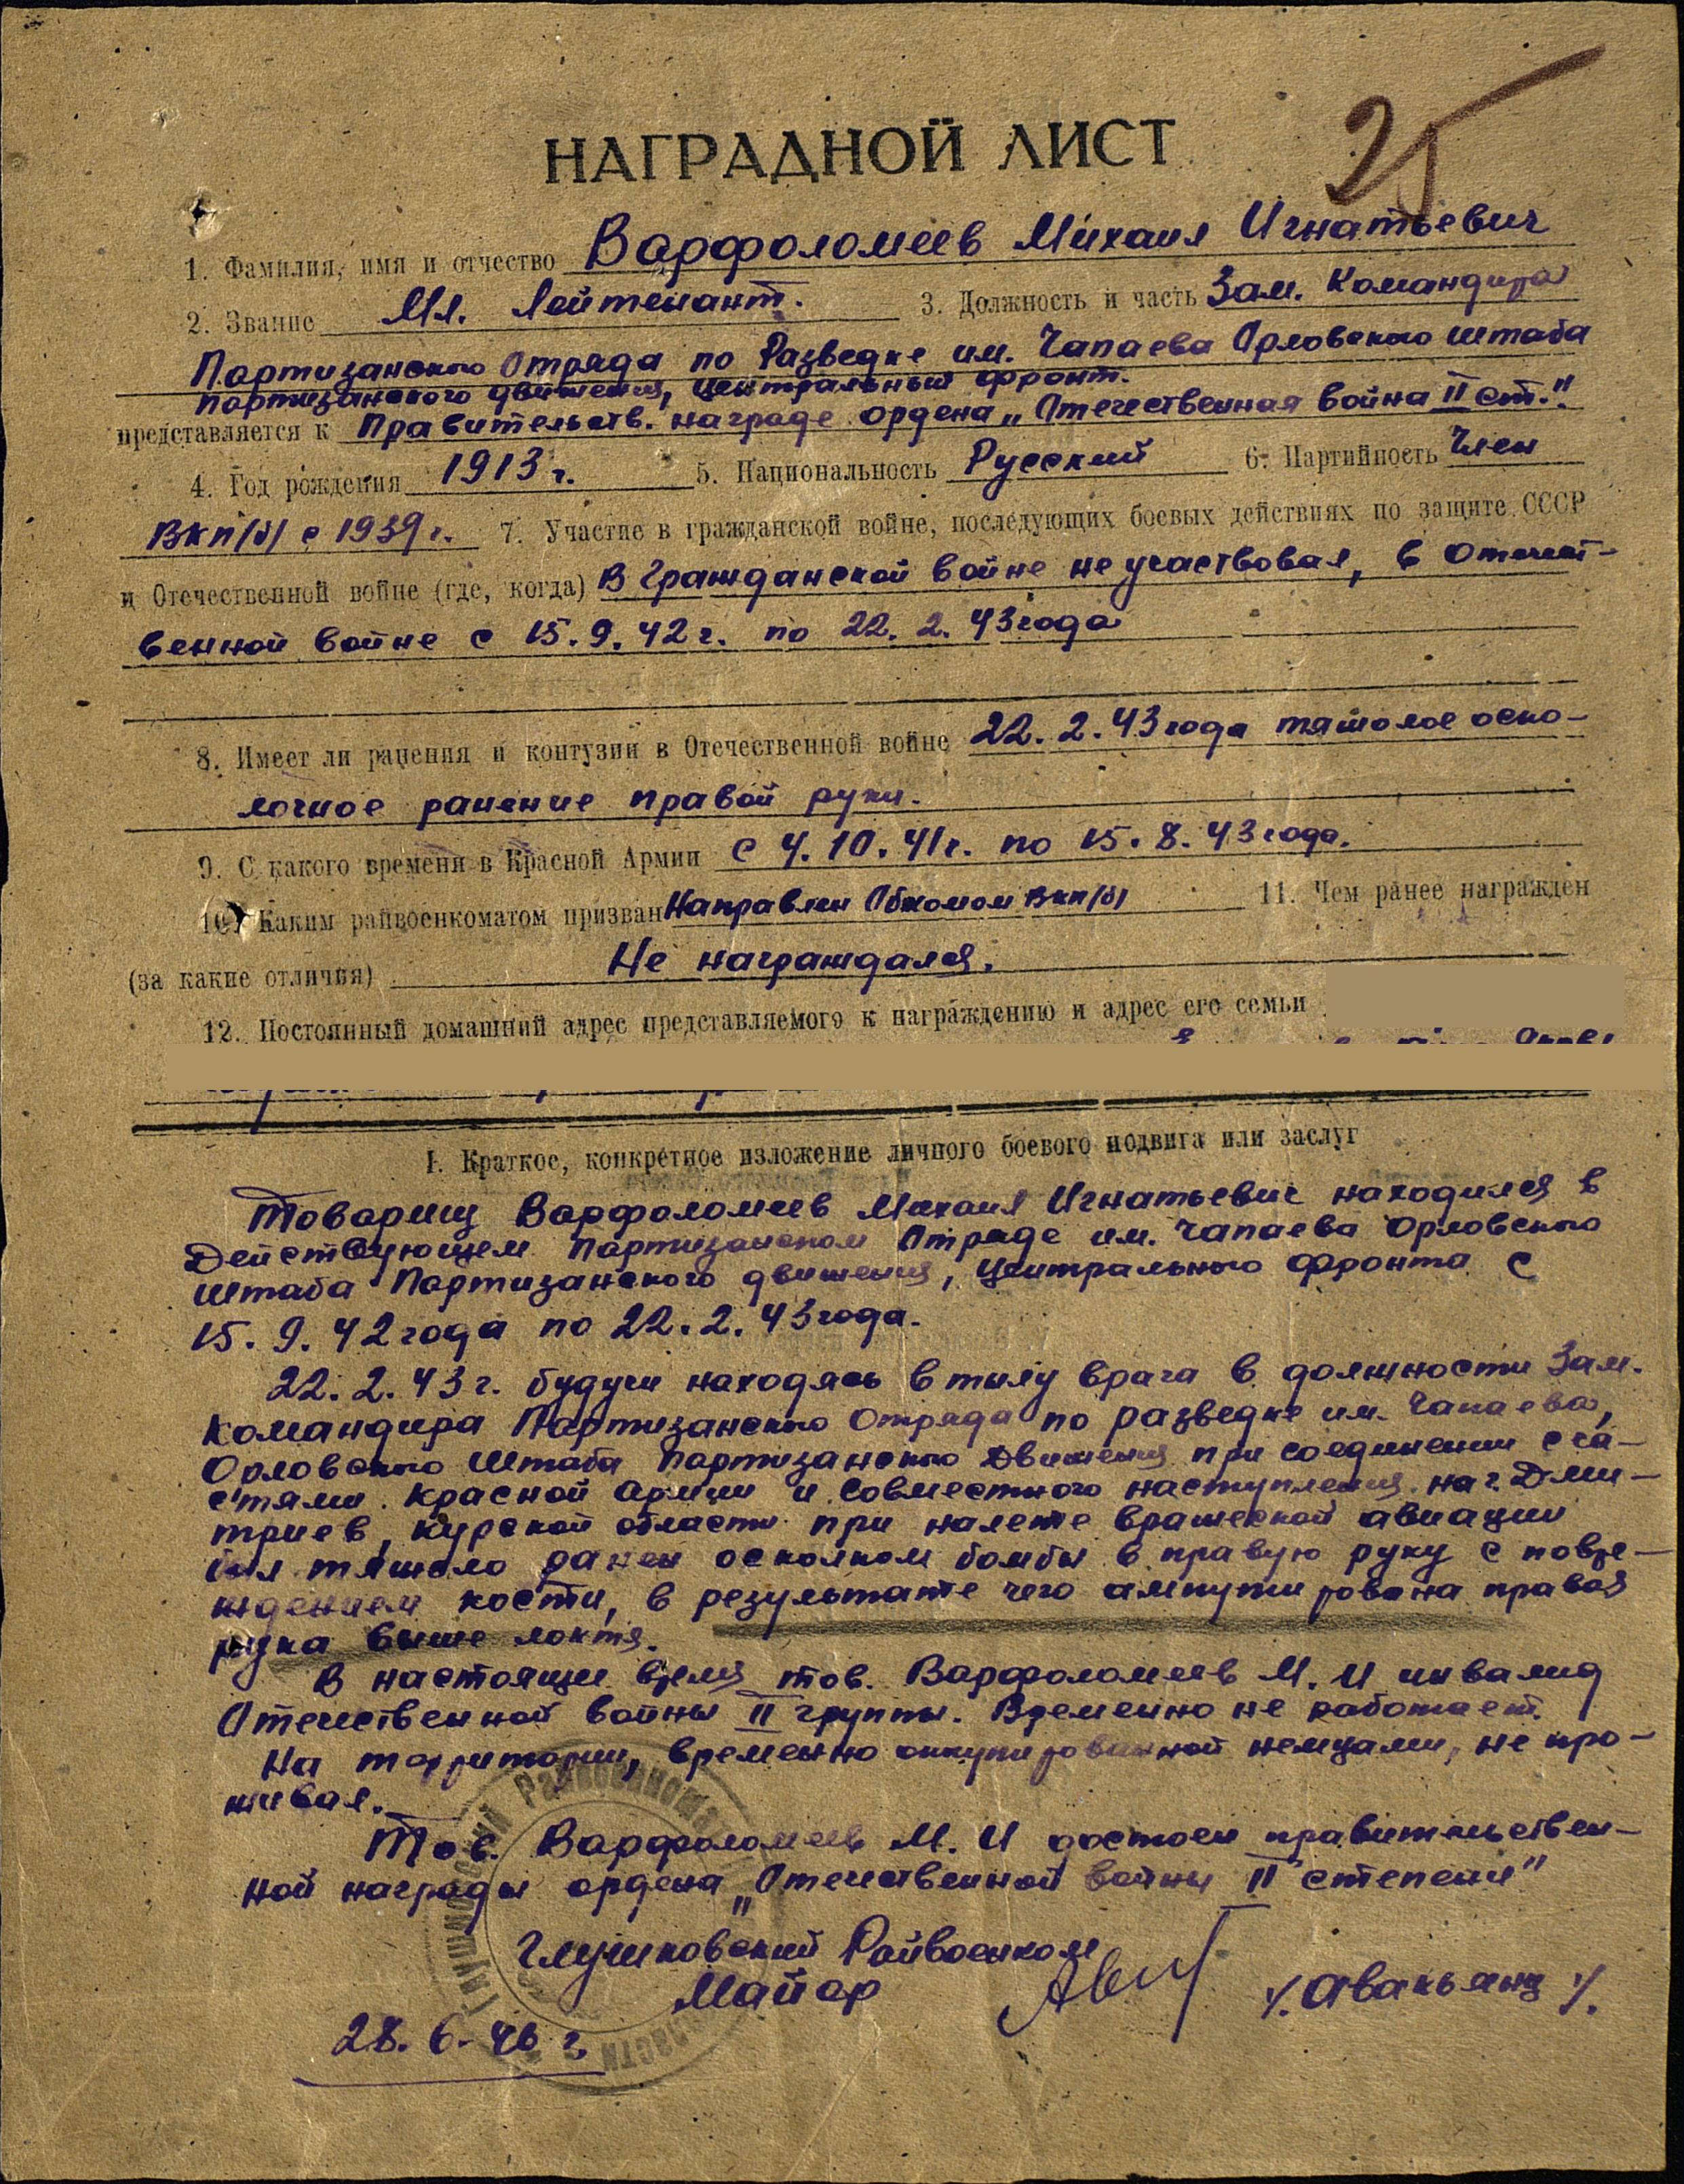 25
НАГРАДНОЙ ЛИСТ
1. Фамилия, имя и отчество Варфоломеев Михаил Игнатьевич
2. Звание Мл. Лейтенант. 3. Должность и часть Зам. Командира
Партизанского Отряда по Разведке им. Чапаева Орловского штаба
партизанского движения, Центральный фронт.
представляется к Правительств. награде ордена „Отечественная война II ст."
4. Год рождения 1913 г. 5. Национальность Русский 6. Партийность Член
ВКП/б/ с 1939 г. 7. Участие в гражданской войне, последующих боевых действиях по защите СССР
и Отечественной войне (где, когда) В Гражданской войне не участвовал, в Отечест-
венной войне с 15.9.42 г. по 22.2.43 года
8. Имеет ли ранения и контузии в Отечественной войне 22.2.43 года тяжолое оско-
лочное ранение правой руки.
9. С какого времени в Красной Армии с 4.10.41 г. по 15.8.43 года.
10. Каким райвоенкоматом призван Направлен Обкомом ВКП/б/ 11. Чем ранее награжден
(за какие отличия) Не награждался.
12. Постоянный домашний адрес представляемого к награждению и адрес его семьи
I. Краткое, конкретное изложение личного боевого подвига или заслуг
Товарищ Варфоломеев Михаил Игнатьевич находился в
Действующем Партизанском Отряде им. Чапаева Орловского
штаба Партизанского движения, Центрального фронта с
15.9.42 года по 22.2.43 года.
22.2.43 г. будучи находясь в тылу врага в должности Зам.
Командира Партизанского Отряда по разведке им. Чапаева,
Орловского Штаба Партизанского Движения при соединении с ча-
стями Красной Армии и Совместного наступления на г. Дми-
триев, Курской области при налете вражеской авиации
был тяжело ранен осколком бомбы в правую руку с повре-
ждением кости, в результате чего ампутирована правая
рука выше локтя.
В настоящее время тов. Варфоломеев М. И инвалид
Отечественной войны II группы. Временно не работает.
На территории, временно оккупированной немцами, не про-
живал.
Тов. Варфоломеев М. И достоен правительствен-
ной награды ордена „Отечественной войны II степени"
Глушковский Райвоенком
Майор /. Авакьянц /.
28.6.46 г.